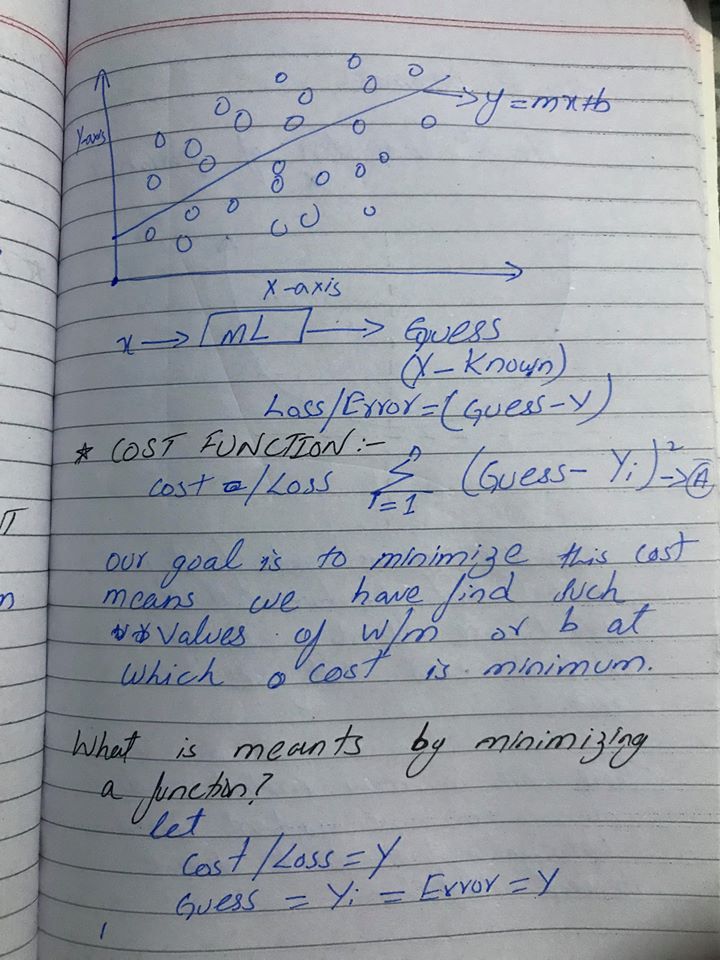 Y-axis
y = mx+b
X-axis
x → ML → Guess
(Y- Known)
Loss/Error = (Guess-Y)
* COST FUNCTION:-
cost =/Loss n Σ i=1 (Guess- Yi)² → A
our goal is to minimize this cost
means we have find such
values of w/m or b at
which cost is minimum.
What is meants by minimizing
a function?
let
Cost/Loss = Y
Guess = Yi = Error = Y